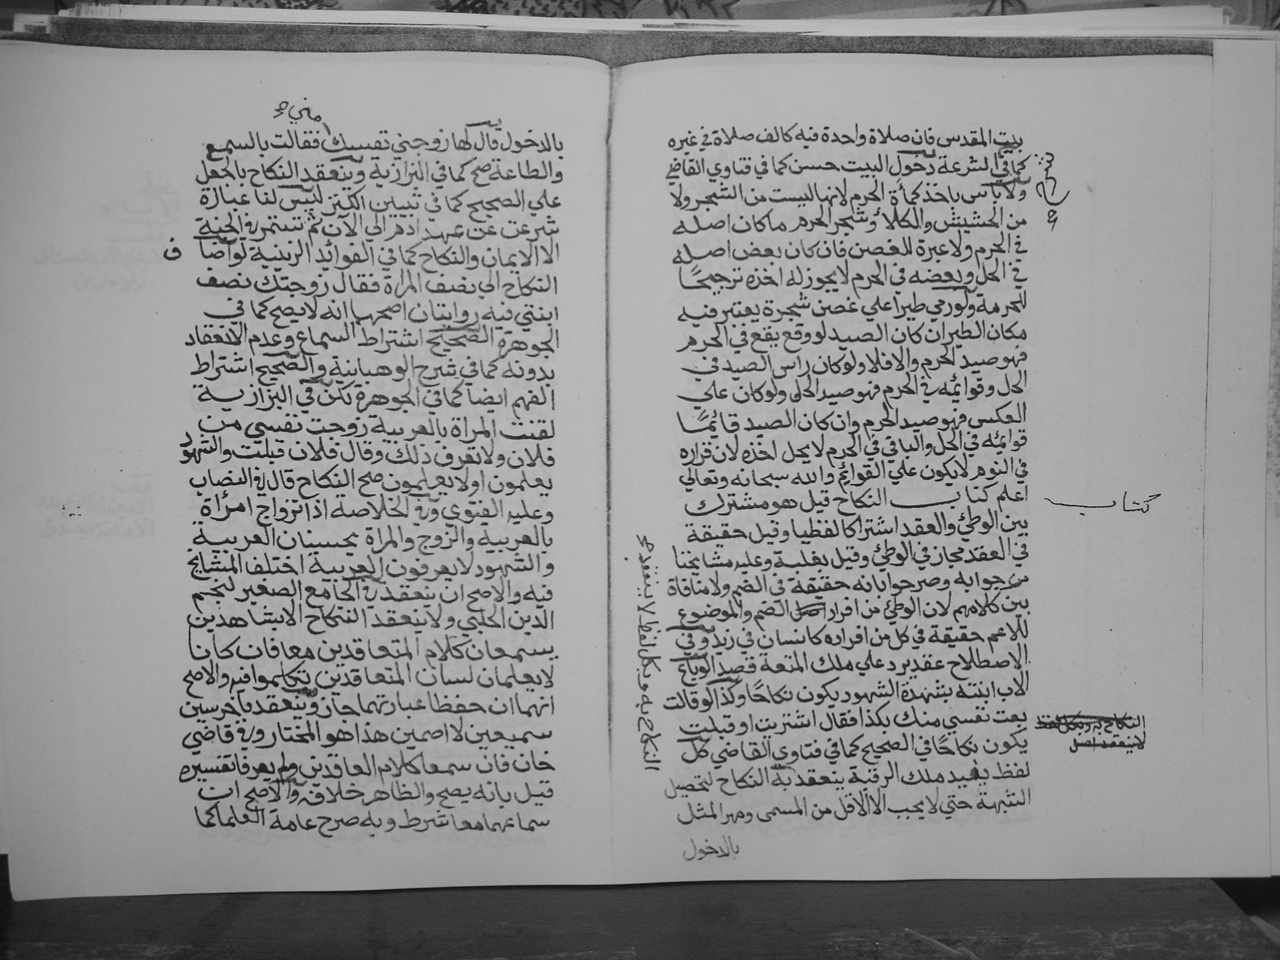 بيت المقدس فان صلاة واحدة فيه كالف صلاة في غيره
كما في الشرعة دخول البيت حسن كما في فتاوي القاضي
ولا باس باخذ كمأة الحرم لانها ليست من الشجر ولا
من الحشيش والكلاء وشجر الحرم ما كان اصله
في الحرم ولا عبرة للغصن فان كان بعض اصله
في الحل وبعضه في الحرم لا يجوز له اخذه ترجيحًا
للحرمة ولو رمي طيرا علي غصن شجرة يعتبر فيه
مكان الطير ان كان الصيد لو وقع يقع في الحرم
فهو صيد الحرم والا فلا ولو كان راس الصيد في
الحل وقوائمه في الحرم فهو صيد الحل ولو كان علي
العكس فهو صيد الحرم وان كان الصيد قائمًا
قوائمه في الحل والباقي في الحرم لا يحل اخذه لان قراره
في النوم لا يكون علي القوائم والله سبحانه وتعالي
اعلم كتاب النكاح قيل هو مشترك
بين الوطئ والعقد اشتراكا لفظيا وقيل حقيقة
في العقد مجاز في الوطئ وقيل بقلبه وعليه مشايخنا
صرحوا به وصرحوا بانه حقيقة في الضم ولا منافاة
بين كلامهم لان الوطئ من افراد الضم والموضوع
للاعم حقيقة في كل من افراده كانسان في زيد وفي
الاصطلاح عقد يرد علي ملك المتعة قصدا لو باع
الاب ابنته بشهدة الشهود يكون نكاحًا وكذا لو قالت
بعت نفسي منك بكذا فقال اشتريت او قبلت
يكون نكاحًا في الصحيح كما في فتاوي القاضي كل
لفظ يفيد ملك الرقبة ينعقد به النكاح لتحصيل
الشبهة حتي لا يجب الا الاقل من المسمى ومهر المثل
بالدخول
كتاب
النكاح به وبكل لفظ لا ينعقد
بالدخول قال لها زوجني نفسك فقالت بالسمع
مني
والطاعة صح كما في البزازية وينعقد النكاح بالجعل
علي الصحيح كما في تبيين الكنز ليس لنا عبادة
شرعت عن عهد ادم الي الآن ثم تستمر في الجنة
الا الايمان والنكاح كما في الفوائد الزينية لو اضا
ف
النكاح الي نصف المراة فقال زوجتك نصف
ابنتي فيه روايتان اصحها انه لا يصح كما في
الجوهرة الصحيح اشتراط السماع وعدم الانعقاد
بدونه كما في شرح الوهبانية والصحيح اشتراط
الفهم ايضا كما في الجوهرة لكن في البزازية
لقنت المراة بالعربية زوجت نفسي من
فلان ولا تعرف ذلك وقال فلان قبلت والشهود
يعلمون او لا يعلمون صح النكاح قال في النصاب
وعليه الفتوي وفي الخلاصة اذا تزواج امرأة
بالعربية والزوج والمراة يحسنان العربية
والشهود لا يعرفون العربية اختلف المشايخ
فيه والاصح ان ينعقد في الجامع الصغير لنجم
الدين الحلبي ولا ينعقد النكاح الا بشاهدين
يسمعان كلام المتعاقدين معا فان كانا
لا يعلمان لسان المتعاقدين تكلموا فيه والاصح
انهما ان حفظا عبارتهما جاز وينعقد باخرسين
سميعين لا اصمين هذا هو المختار وفي قاضي
خان فان سمعا كلام العاقدين ولم يعرفا تفسيره
قيل بانه يصح والظاهر خلافه والاصح ان
سماعهما معا شرط وبه صرح عامة العلما كما